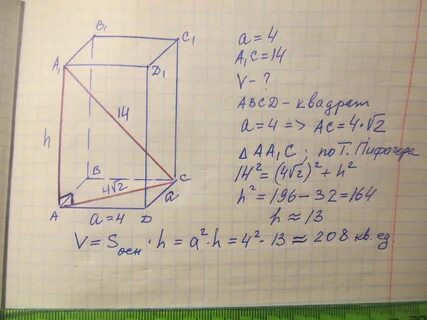 B₁
C₁
A₁
D₁
14
h
B
4√2
C
a
A
a=4
D
a = 4
A₁C = 14
V - ?
ABCD - квадрат
a = 4 => AC = 4·√2
△ AA₁C; по Т. Пифагора
14² = (4√2)² + h²
h² = 196 - 32 = 164
h ≈ 13
V = Sосн · h = a²·h = 4²·13 ≈ 208 кв. ед.